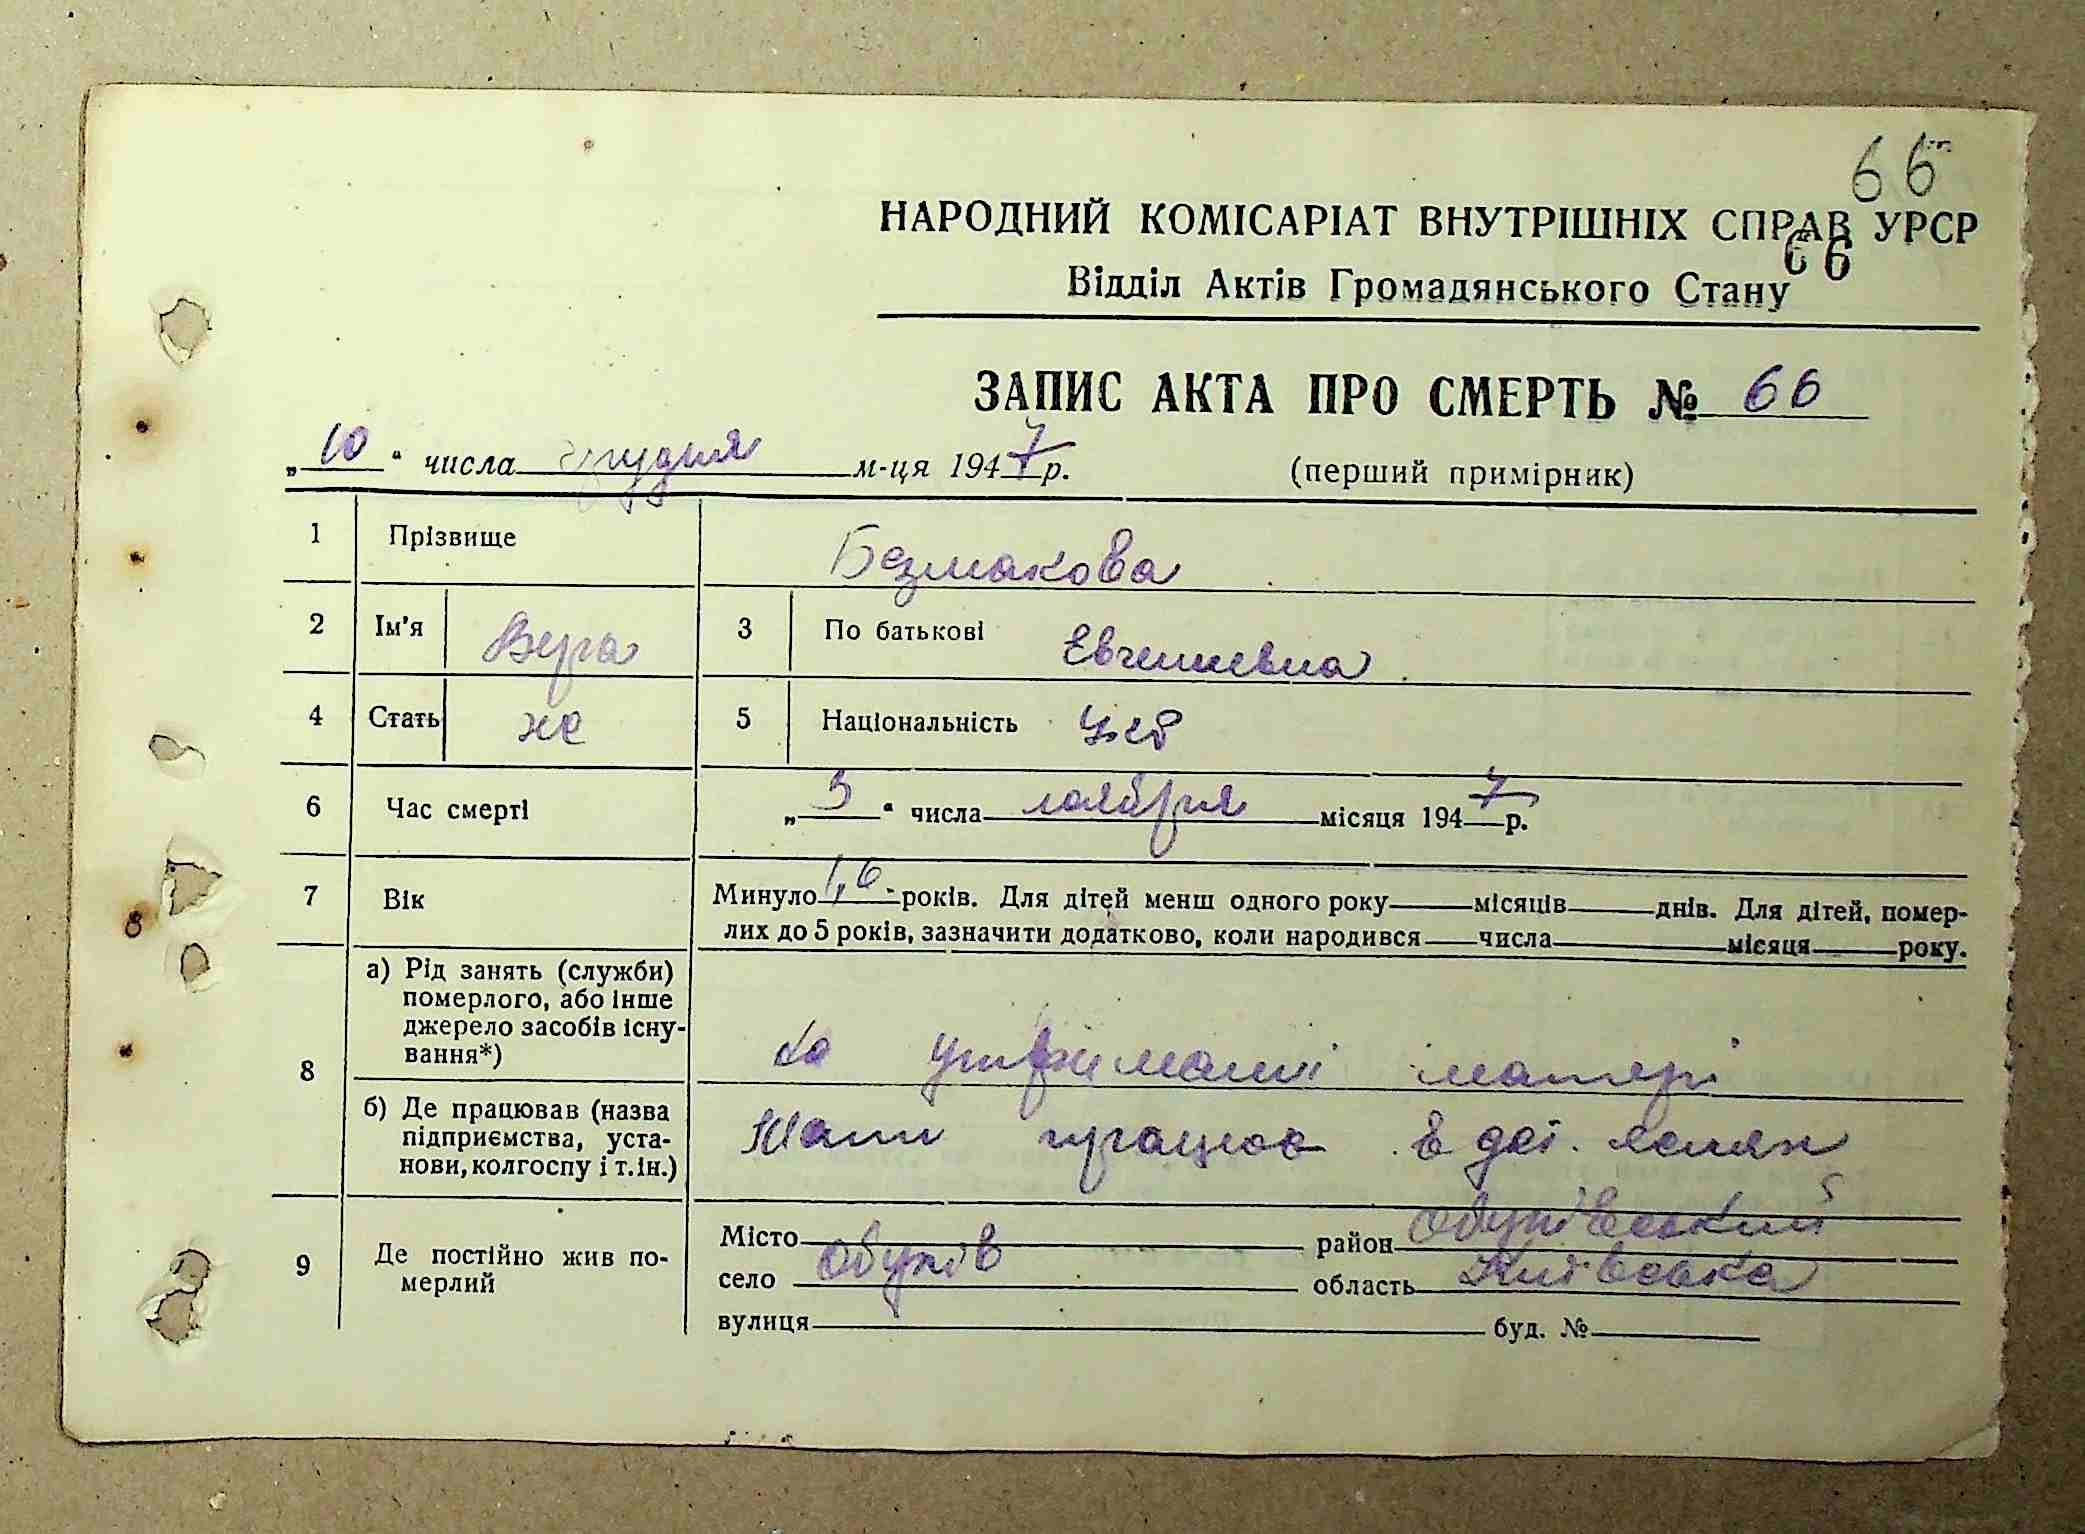 66
НАРОДНИЙ КОМІСАРІАТ ВНУТРІШНІХ СПРАВ УРСР
66
Відділ Актів Громадянського Стану
ЗАПИС АКТА ПРО СМЕРТЬ № 66
„10“ числа грудня м-ця 1947 р. (перший примірник)
1 Прізвище Безмакова
2 Ім'я Вера 3 По батькові Евгениевна
4 Стать же 5 Національність
6 Час смерті „3“ числа ноября місяця 1947 р.
7 Вік Минуло 1,6 років. Для дітей менш одного року місяців днів. Для дітей, помер-
лих до 5 років, зазначити додатково, коли народився числа місяця року.
8 а) Рід занять (служби)
померлого, або інше
джерело засобів існу-
вання*)
на утриманні матері
б) Де працював (назва
підприємства, уста-
нови, колгоспу і т. ін.)
Мати працює в дет. яслях
9 Де постійно жив по-
мерлий
Місто район Обухівський
село Обухів область Київська
вулиця буд. №